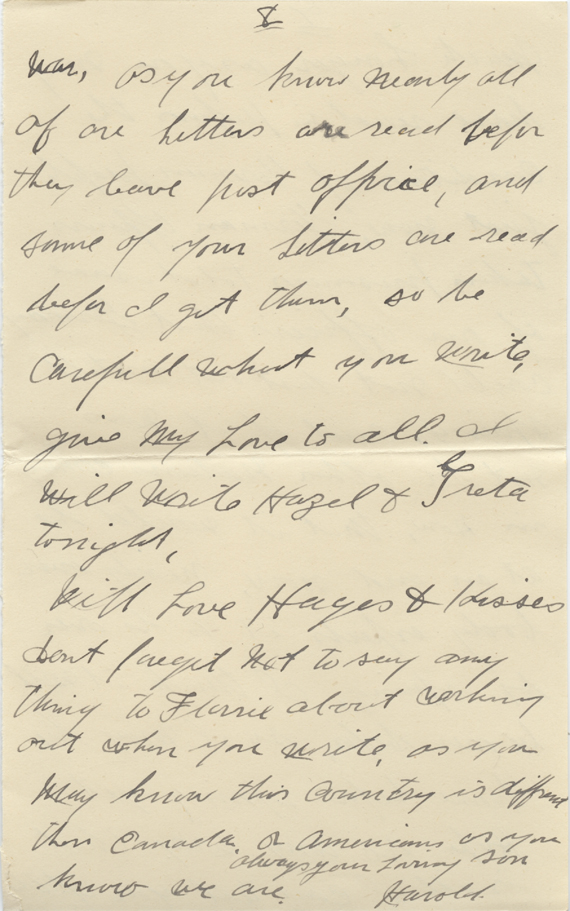 8
War, as you know nearly all
of are letters are read befor
they leave post office, and
some of your letters are read
befor I get them, so be
Carefull what you write,
give My Love to all. I
Will Write Hazel & Greta
tonight,
With Love Huges & Kisses
dont forget Not to say any
thing to Florrie about working
out when you write, as you
May know this Country is diffrent
then Canada or Americans as you
know we are.
always your Loving son
Harold.